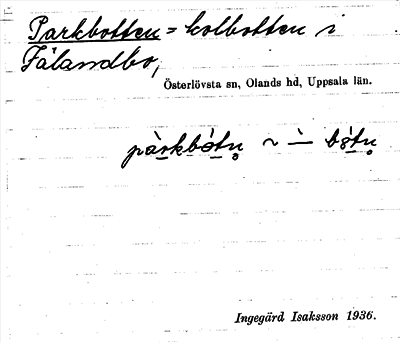 Parkbotten = kolbotten i
Fälandbo,
Österlövsta sn, Olands hd, Uppsala län.
pàrkbótn̥ ~ – bótn̥
Ingegärd Isaksson 1936.